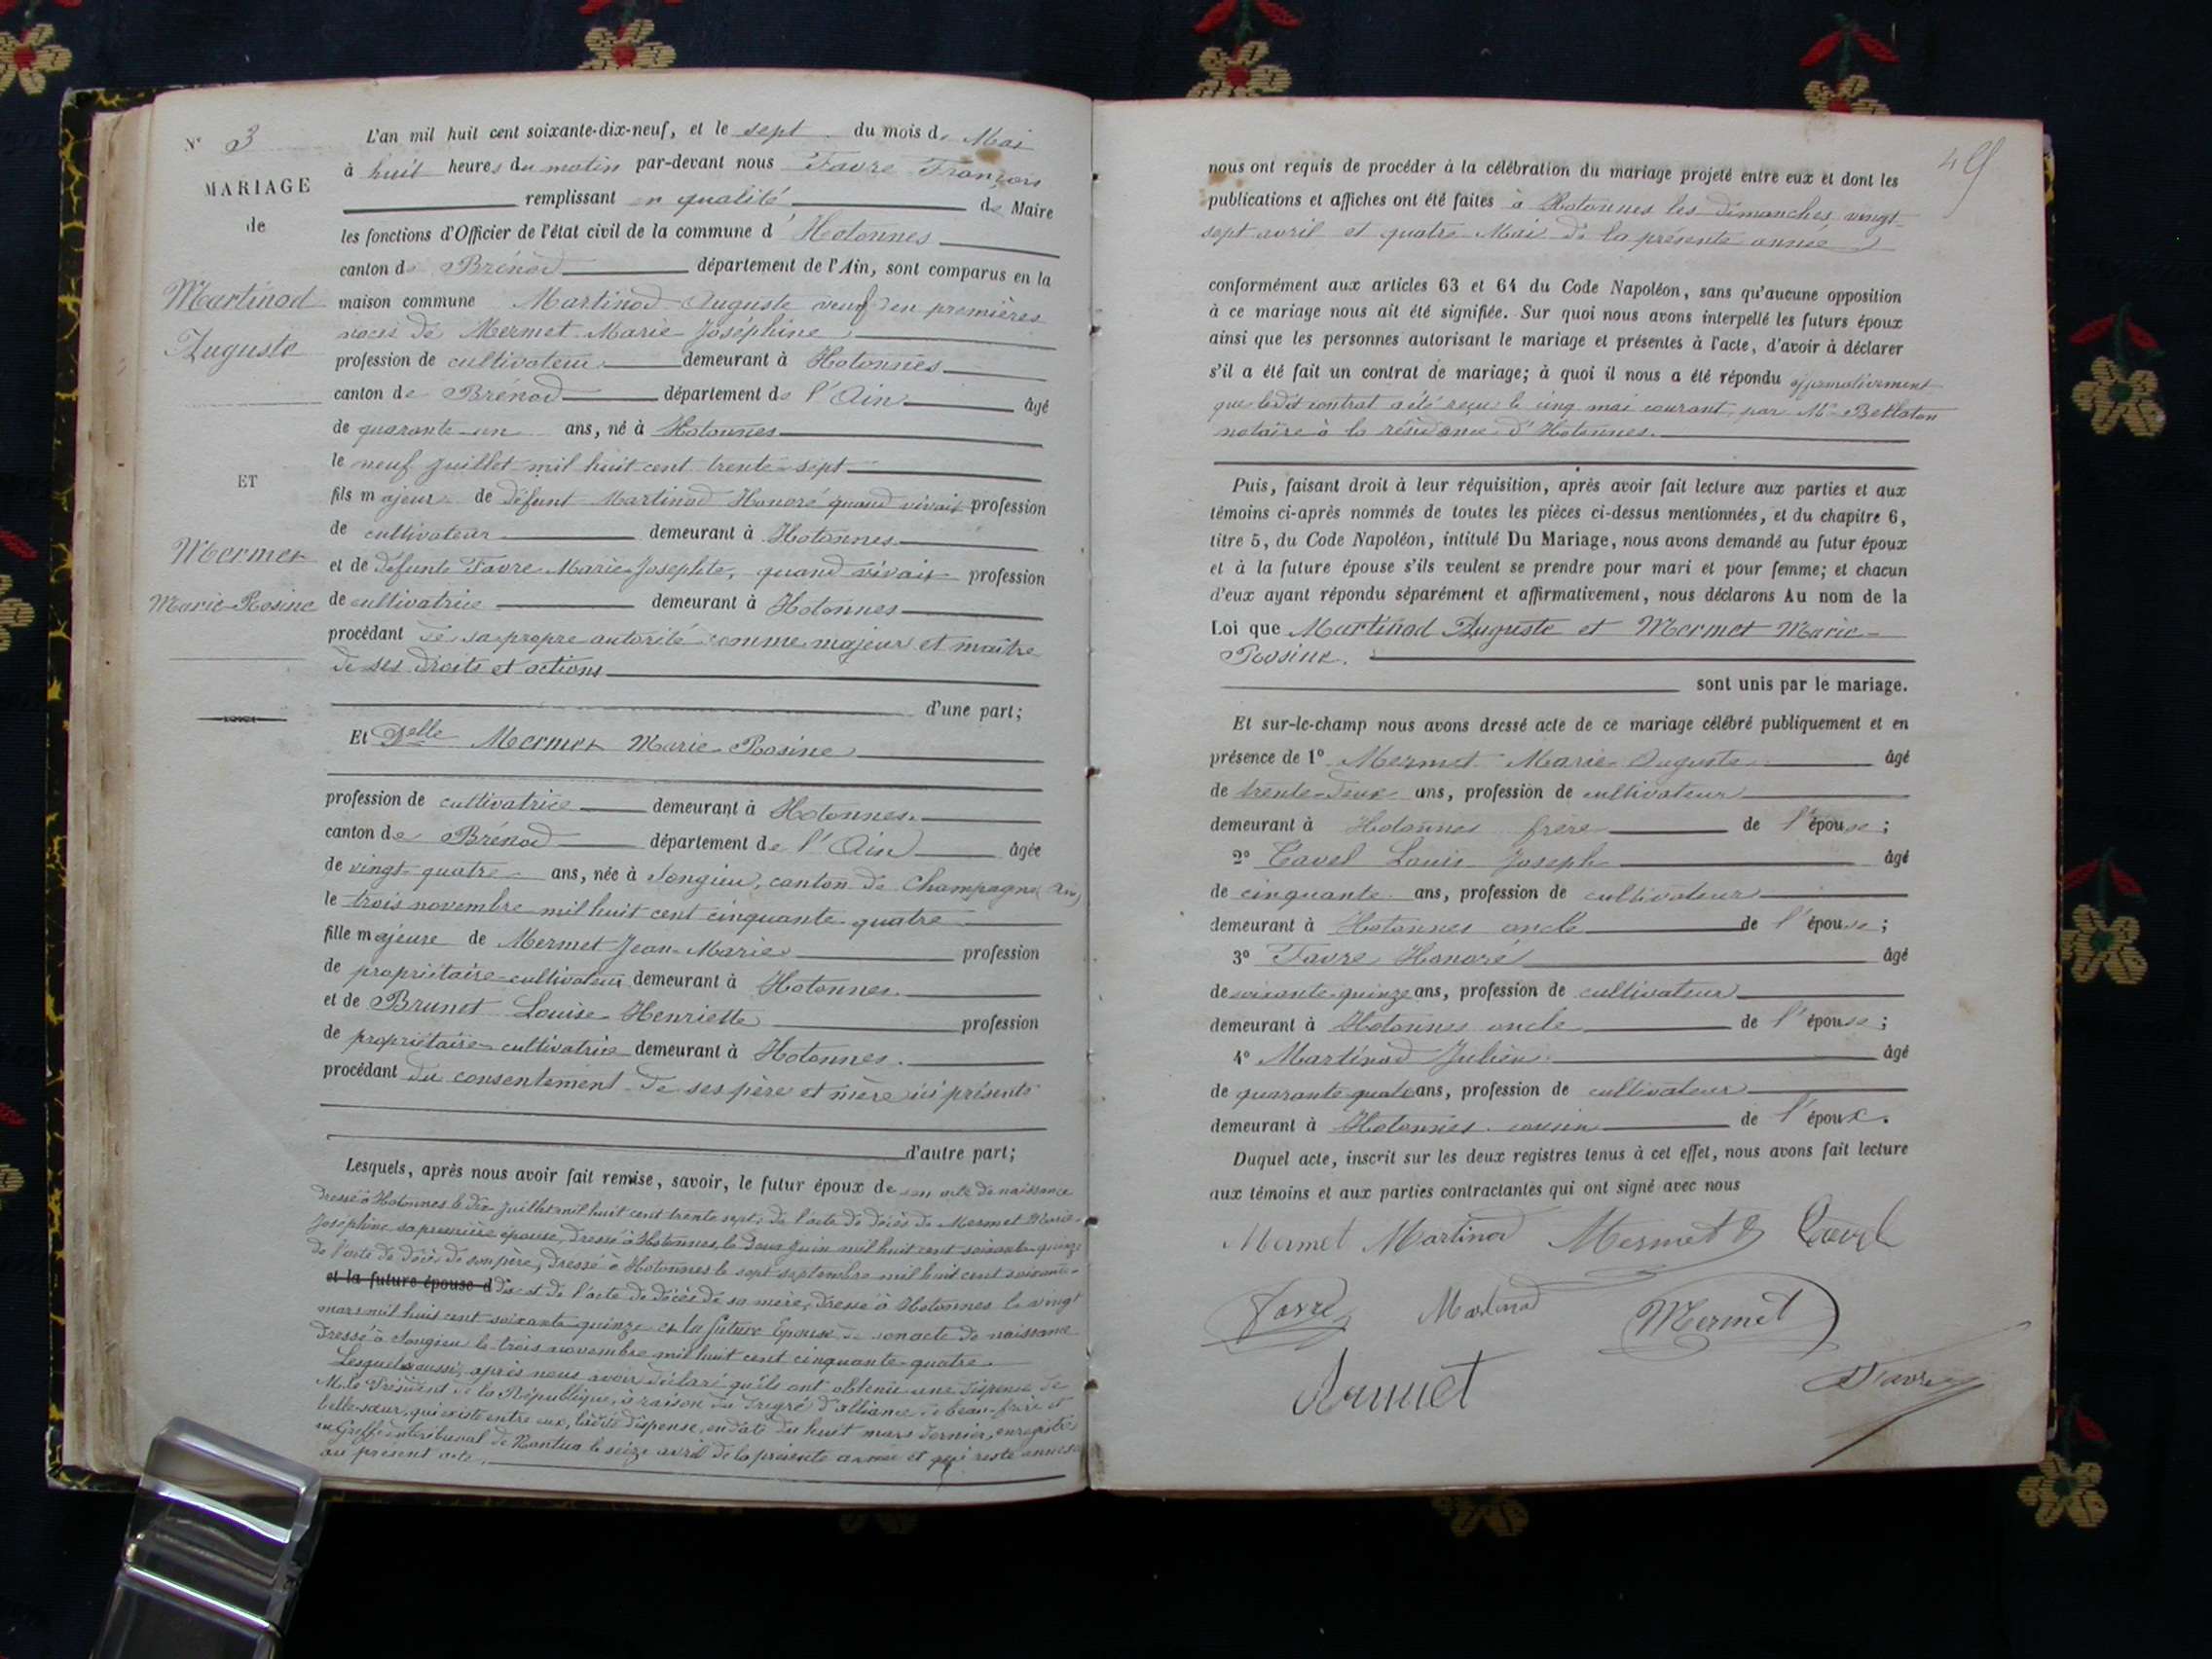 N° 3
MARIAGE
de
Martinod
Auguste
ET
Mermet
Marie-Rosine
L'an mil huit cent soixante-dix-neuf, et le sept du mois de Mai
à huit heures du matin par-devant nous Favre François
remplissant en qualité de Maire
les fonctions d'Officier de l'état civil de la commune d'Hotonnes
canton de Brénod département de l'Ain, sont comparus en la
maison commune Martinod Auguste veuf en premières
noces de Mermet Marie-Joséphine
profession de cultivateur demeurant à Hotonnes
canton de Brénod département de l'Ain âgé
de quarante-un ans, né à Hotonnes
le neuf juillet mil huit cent trente-sept
fils majeur de défunt Martinod Honoré quand vivait profession
de cultivateur demeurant à Hotonnes
et de défunte Favre Marie-Josephte, quand vivait profession
de cultivatrice demeurant à Hotonnes
procédant de sa propre autorité comme majeur et maître
de ses droits et actions
d'une part;
Et Delle Mermet Marie-Rosine
profession de cultivatrice demeurant à Hotonnes
canton de Brénod département de l'Ain âgée
de vingt-quatre ans, née à Songieu, canton de Champagne (Ain)
le trois novembre mil huit cent cinquante-quatre
fille majeure de Mermet Jean-Marie profession
de propriétaire-cultivateur demeurant à Hotonnes
et de Brunet Louise-Henriette profession
de propriétaire-cultivatrice demeurant à Hotonnes
procédant du consentement de ses père et mère ici présents
d'autre part;
Lesquels, après nous avoir fait remise, savoir, le futur époux de son acte de naissance
dressé à Hotonnes le dix juillet mil huit cent trente sept; de l'acte de décès de Mermet Marie-
Joséphine sa première épouse, dressé à Hotonnes, le deux juin mil huit cent soixante-quinze
de l'acte de décès de son père, dressé à Hotonnes le sept septembre mil huit cent soixante-
et la future épouse d dix et de l'acte de décès de sa mère, dressé à Hotonnes le vingt
mars mil huit cent soixante-quinze et la future Epouse de son acte de naissance
dressé à Songieu le trois novembre mil huit cent cinquante-quatre.
Lesquels aussi, après nous avoir déclaré qu'ils ont obtenu une dispense de
M. le Président de la République, à raison du degré d'alliance de beau-frère et
belle-sœur, qui existe entre eux, ladite dispense, en date du huit mars dernier, enregistrée
au Greffe du tribunal de Nantua le seize avril de la présente année et qui reste annexée
au présent acte.
49
nous ont requis de procéder à la célébration du mariage projeté entre eux et dont les
publications et affiches ont été faites à Hotonnes les dimanches vingt-
sept avril et quatre Mai de la présente année
conformément aux articles 63 et 64 du Code Napoléon, sans qu'aucune opposition
à ce mariage nous ait été signifiée. Sur quoi nous avons interpellé les futurs époux
ainsi que les personnes autorisant le mariage et présentes à l'acte, d'avoir à déclarer
s'il a été fait un contrat de mariage; à quoi il nous a été répondu affirmativement
que ledit contrat a été reçu le cinq mai courant, par Me
notaire à la résidence d'Hotonnes.
Puis, faisant droit à leur réquisition, après avoir fait lecture aux parties et aux
témoins ci-après nommés de toutes les pièces ci-dessus mentionnées, et du chapitre 6,
titre 5, du Code Napoléon, intitulé Du Mariage, nous avons demandé au futur époux
et à la future épouse s'ils veulent se prendre pour mari et pour femme; et chacun
d'eux ayant répondu séparément et affirmativement, nous déclarons Au nom de la
Loi que Martinod Auguste et Mermet Marie-
Rosine.
sont unis par le mariage.
Et sur-le-champ nous avons dressé acte de ce mariage célébré publiquement et en
présence de 1° Mermet Marie-Auguste âgé
de trente-deux ans, profession de cultivateur
demeurant à Hotonnes frère de l'épouse;
2° Cavel Louis-Joseph âgé
de cinquante ans, profession de cultivateur
demeurant à Hotonnes oncle de l'épouse;
3° Favre Honoré âgé
de soixante-quinze ans, profession de cultivateur
demeurant à Hotonnes oncle de l'épouse;
4° Martinod Julien âgé
de quarante quatre ans, profession de cultivateur
demeurant à Hotonnes cousin de l'époux.
Duquel acte, inscrit sur les deux registres tenus à cet effet, nous avons fait lecture
aux témoins et aux parties contractantes qui ont signé avec nous
Mermet Martinod Mermet Cavel
Favre Martinod Mermet
Favre